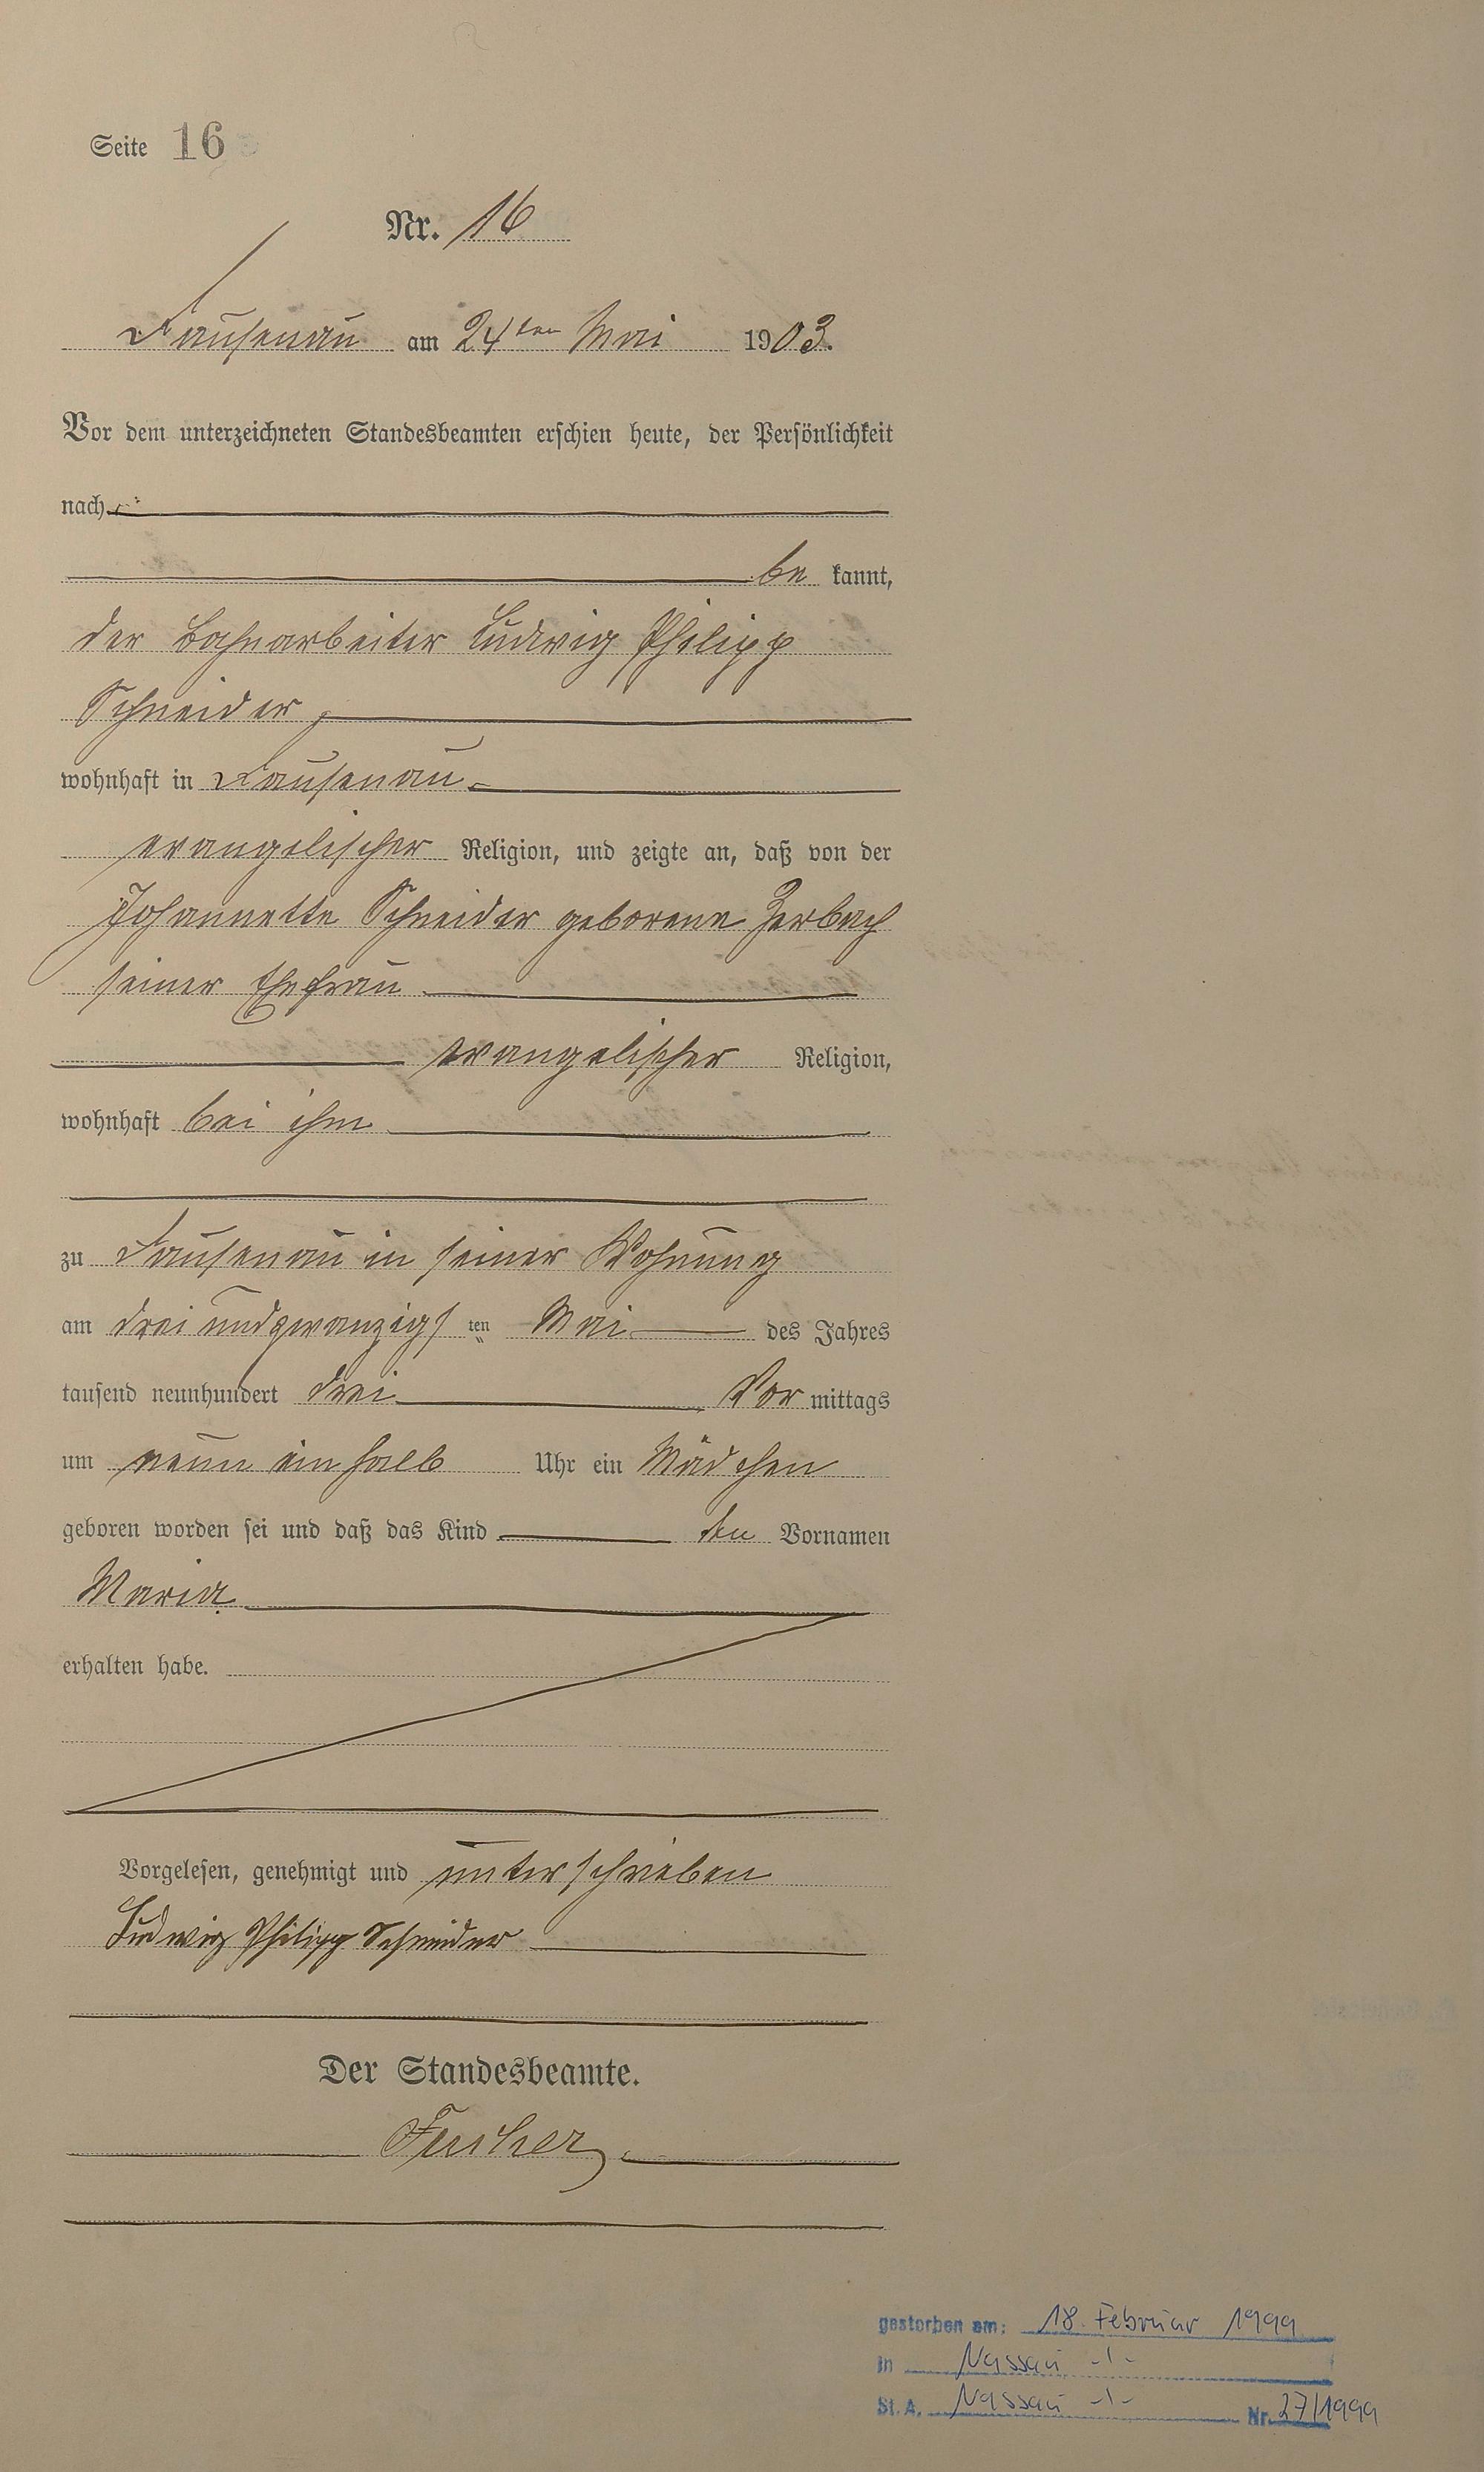 Seite 16
Nr. 16
Dausenau am 24ten Mai 1903.
Vor dem unterzeichneten Standesbeamten erschien heute, der Persönlichkeit
nach
be kannt,
der Bahnarbeiter Ludwig Philipp
Schneider,
wohnhaft in Dausenau
evangelischer Religion, und zeigte an, daß von der
Johannette Schneider geborene Zerbach
seiner Ehefrau
evangelischer Religion,
wohnhaft bei ihm
zu Dausenau in seiner Wohnung
am drei und zwanzigs ten Mai des Jahres
tausend neunhundert drei Vor mittags
um neun ein halb Uhr ein Mädchen
geboren worden sei und daß das Kind den Vornamen
Maria
erhalten habe.
Vorgelesen, genehmigt und unterschrieben
Ludwig Philipp Schneider
Der Standesbeamte.
gestorben am: 18. Februar 1999
in Nassau -/-
St. A. Nassau -/- Nr. 27/1999